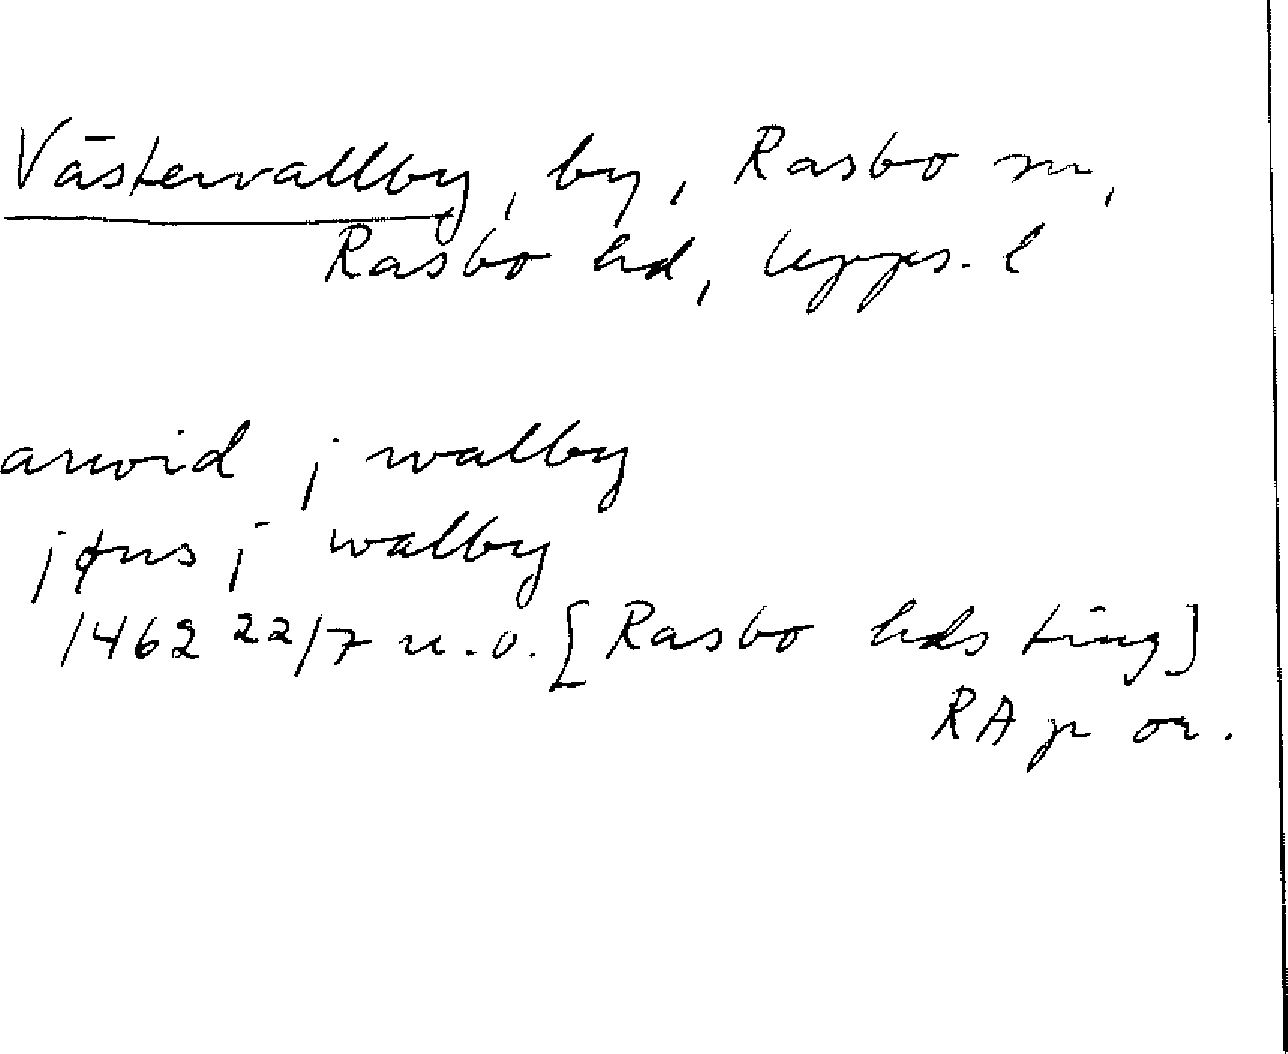 Västervallby, by, Rasbo sn,
Rasbo hd, Upps. l
arwid j walby
jøns j walby
1462 22/7 u.o. [Rasbo hds ting]
RA p or.